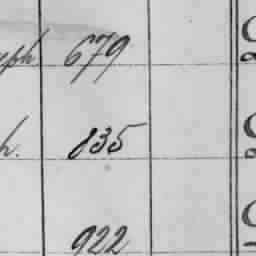 eph 679
h. 835
922